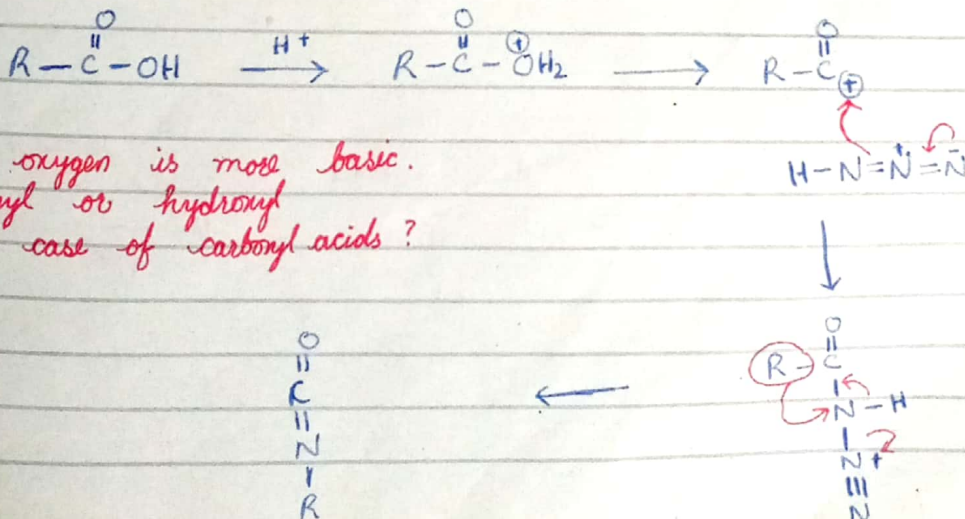 O O O
R – C – OH H+ R – C – OH2 R – C +
H – N = N = N
oxygen is more basic.
yl or hydroxyl
case of carbonyl acids ?
O O
C R – C
N N – H
R N +
N